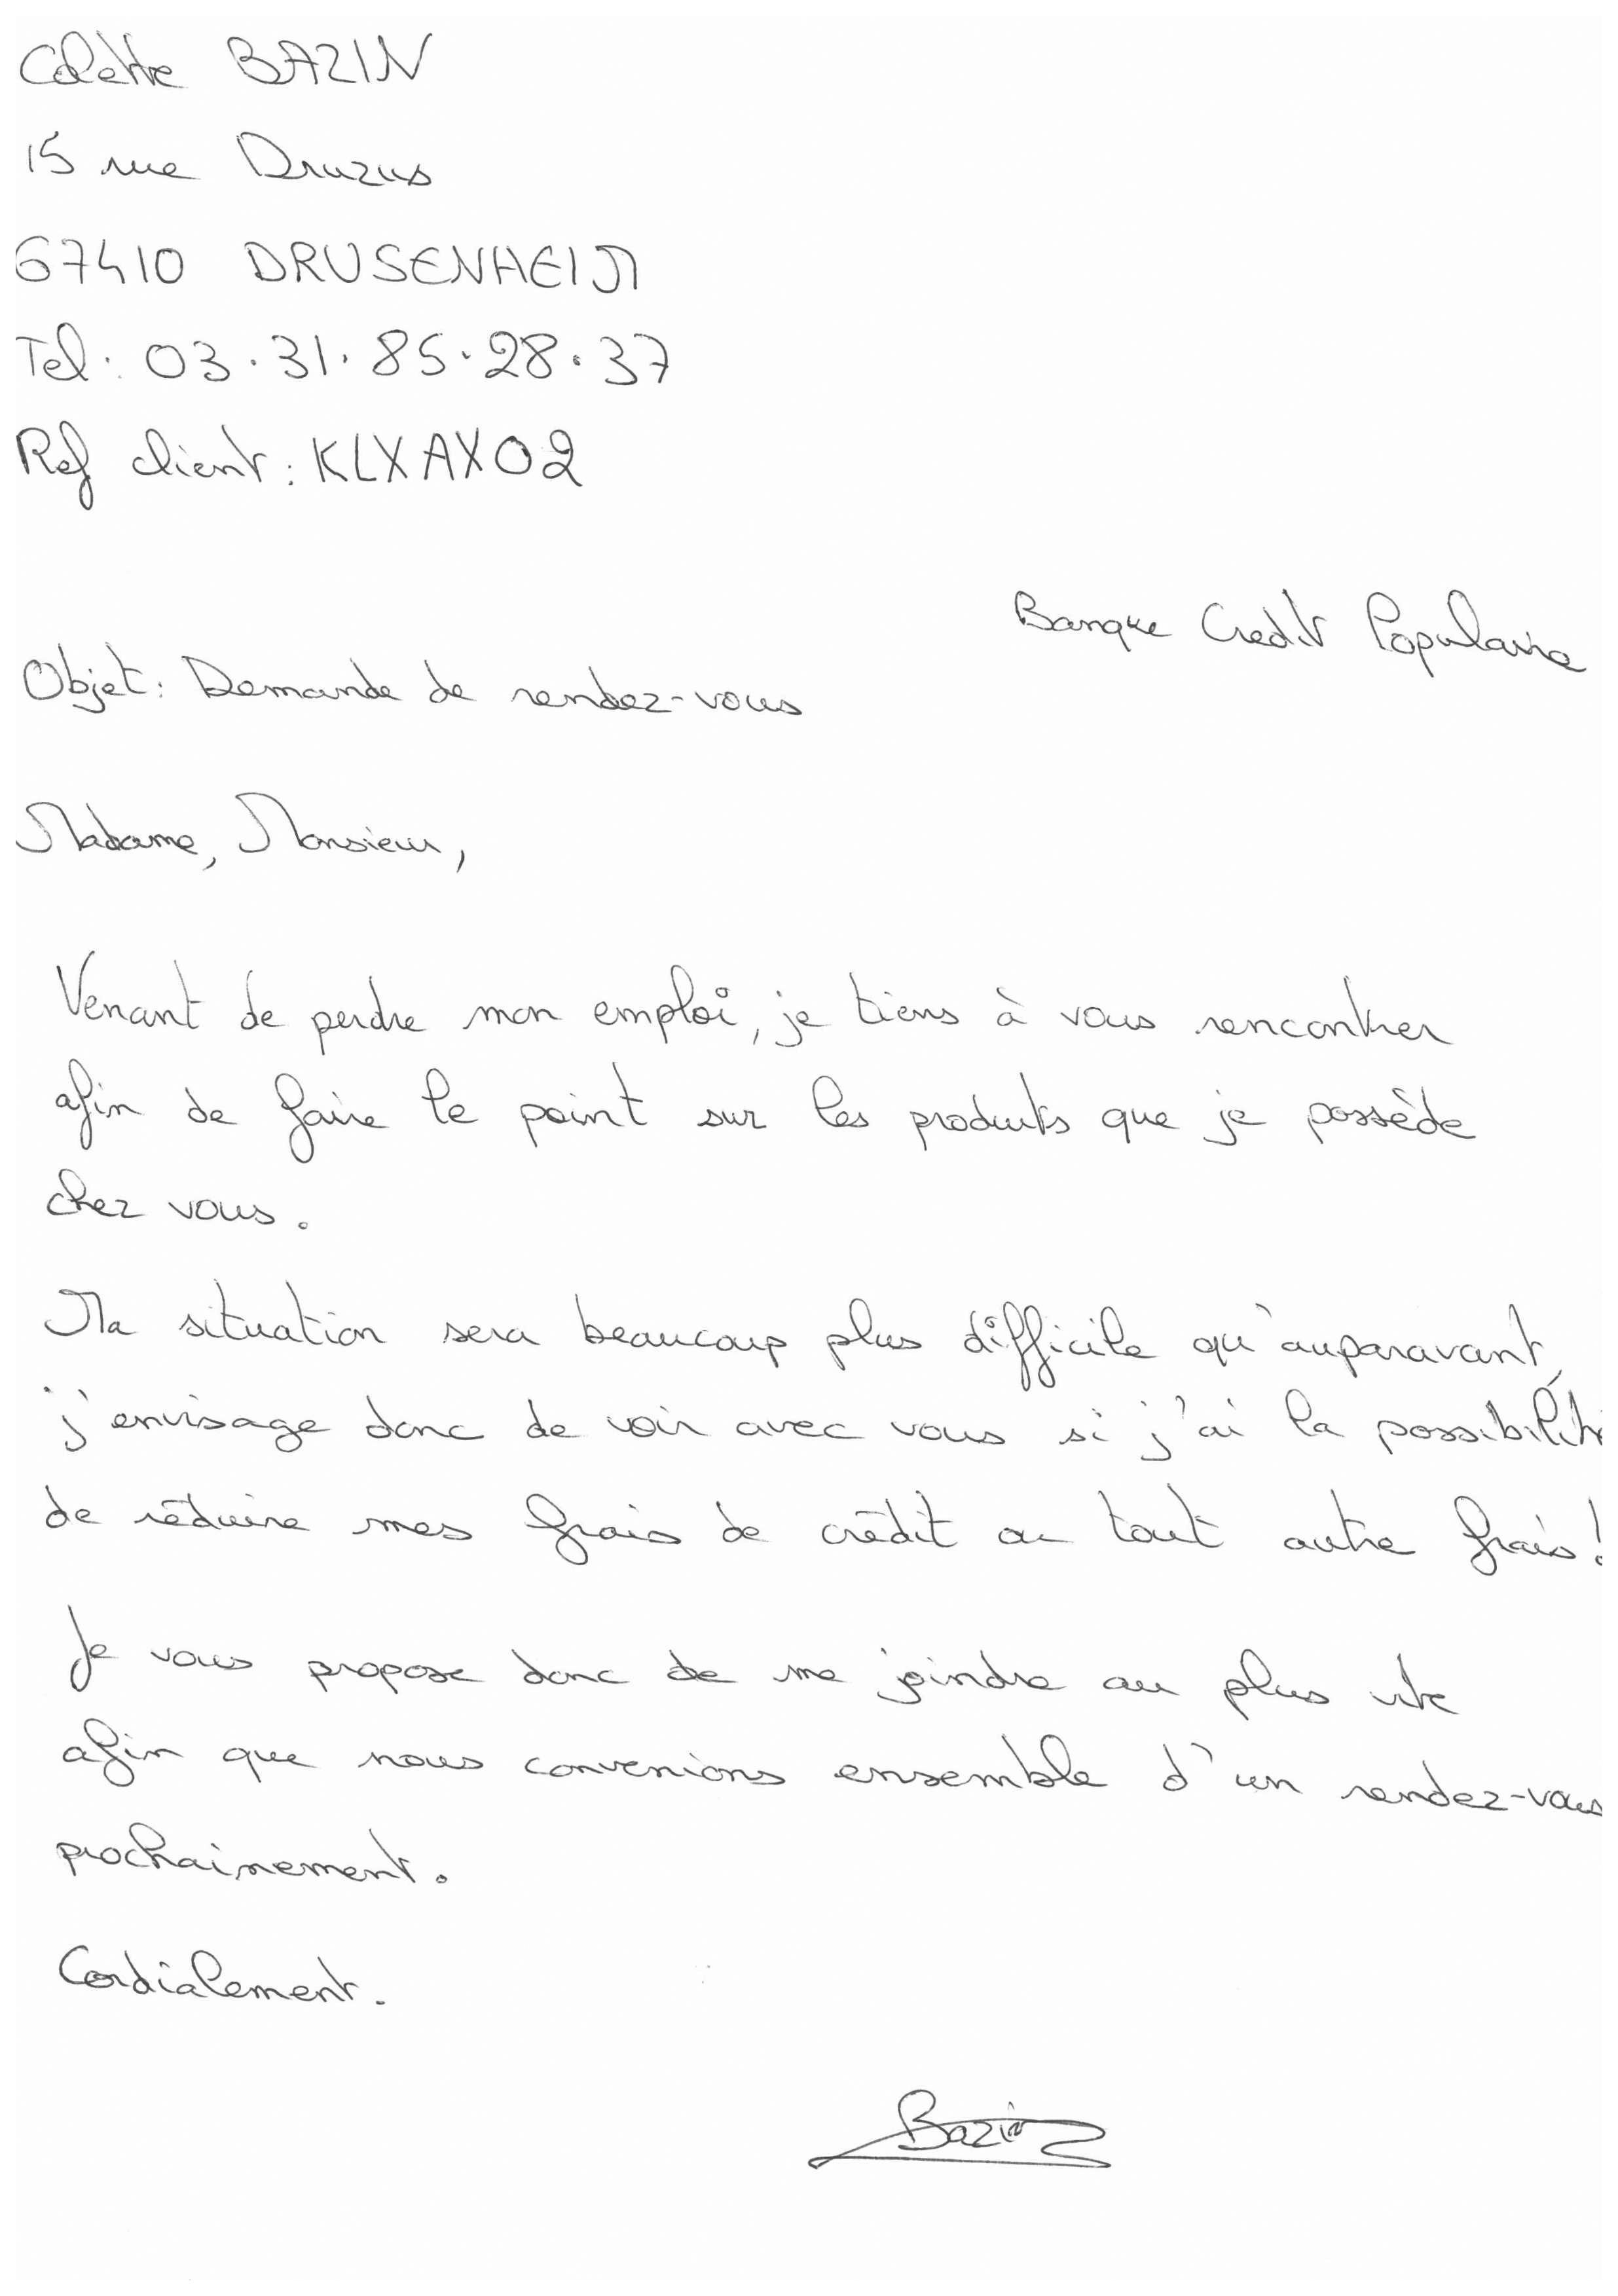 Colette BAZIN
15 rue Druzus
67410 DRUSENHEIM
Tel : 03.31.85.28.37
Ref client : KLXAX02
Banque Credit Populaire
Objet : Demande de rendez-vous
Madame, Monsieur,
Venant de perdre mon emploi, je tiens à vous rencontrer
afin de faire le point sur les produits que je possède
chez vous.
Ma situation sera beaucoup plus difficile qu'auparavant,
j'envisage donc de voir avec vous si j'ai la possibilité
de réduire mes frais de crédit ou tout autre frais !
Je vous propose donc de me joindre au plus vite
afin que nous convenions ensemble d'un rendez-vous
prochainement.
Cordialement.
Bazin